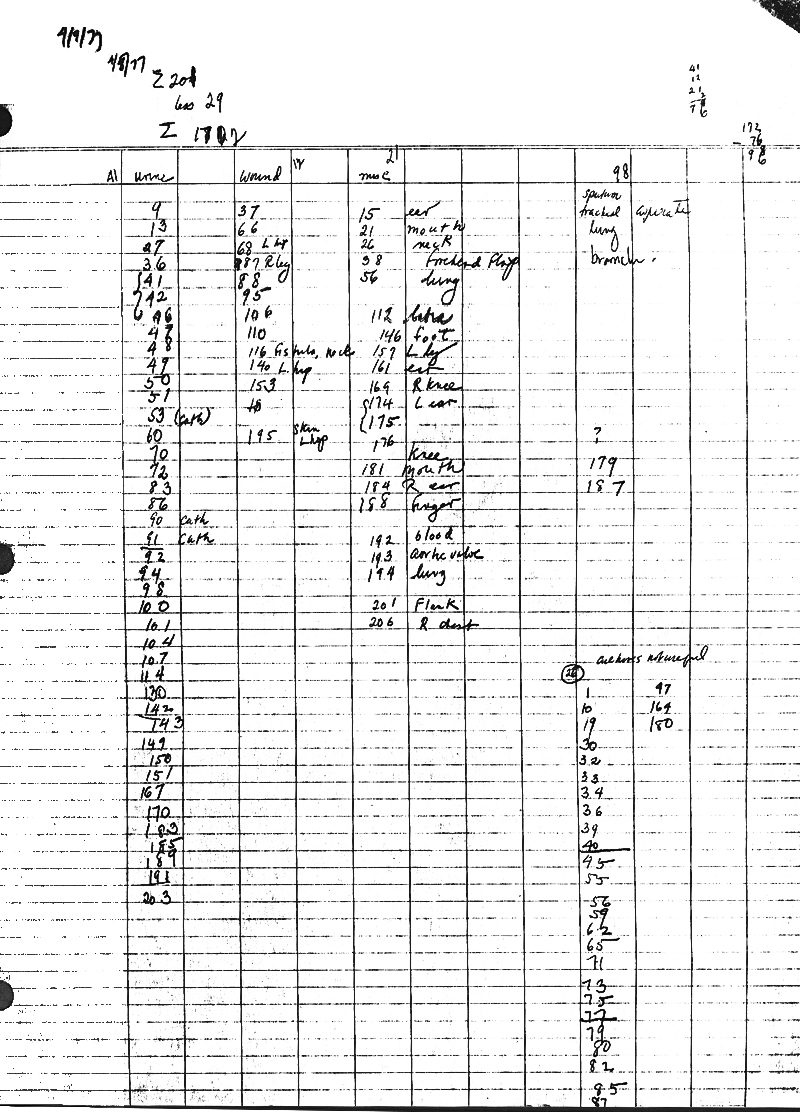 4/9/77
4/8/77
Σ 201
less 29
Σ 172
41
12
21
76
172
- 76
98
A1 urine wound 14 misc 21 98
sputum
9 37 15 ear tracheal aspirate
13 66 21 mouth lung
27 68 L hip 26 neck
36 87 R leg 38 bronch.
41 88 56 lung
42 95
46 106 112
47 110 146 foot
48 116 fistula, neck 157 L leg
49 140 L hip 161 ear
50 153 169 R knee
51 174 L ear
53 (cath) 175
60 195 skin L hip 176 ?
70 knee
72 181 mouth 179
83 184 R ear 187
86 188 finger
90 cath
91 cath 192 blood
92 193 aortic valve
94 194 lung
98
100 201 Flank
101 206 R chest
104
107
114 26
130 1 97
142 10 164
143 19 180
149 30
150 32
151 33
167 34
170 36
183 39
185 40
189 45
191 55
203 56
59
62
65
71
73
75
77
79
80
82
85
87